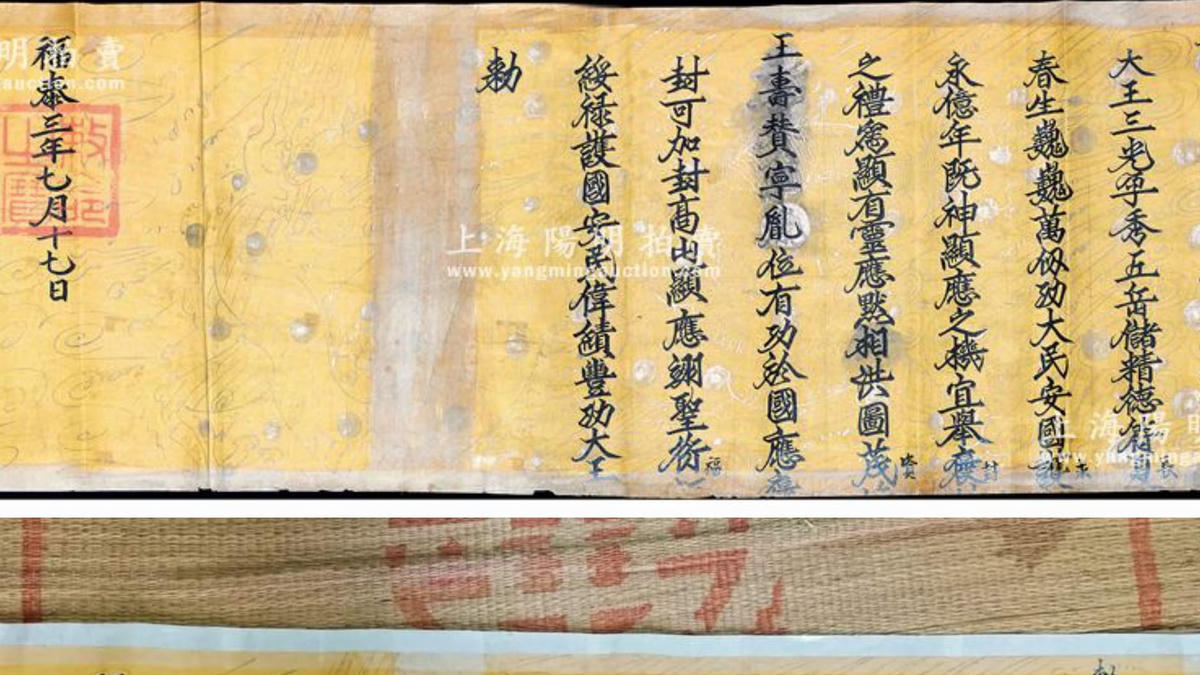 大王三光孕秀五岳儲精德
春生巍巍萬仭功大民安國
永億年既神顯應之機宜舉
之禮寓顯有靈應默相洪圖茂
王壽贊寧胤位有功於國應
封可加封高山顯應翊聖衍
綏祿護國安民偉績豐功大王
敕
福泰三年七月十七日
敕命之寶
上海陽明拍賣
www.yangmingauction.com